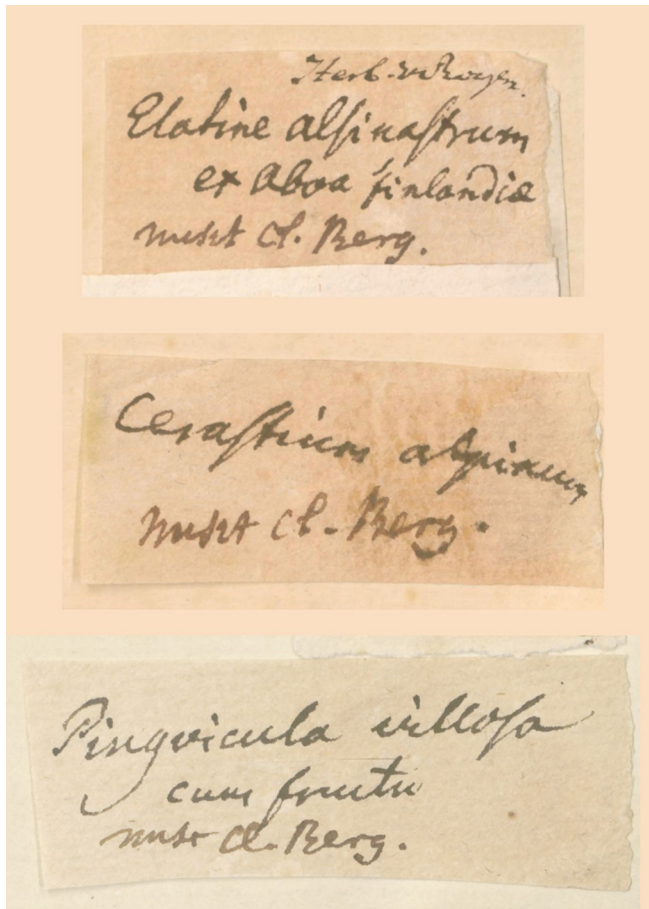 Herb. v. Royen.
Elatine alsinastrum
ex Aboa finlandiæ
misit Cl. Berg.
Cerastium alpinum
misit Cl. Berg.
Pingvicula villosa
cum fructu
misit Cl. Berg.